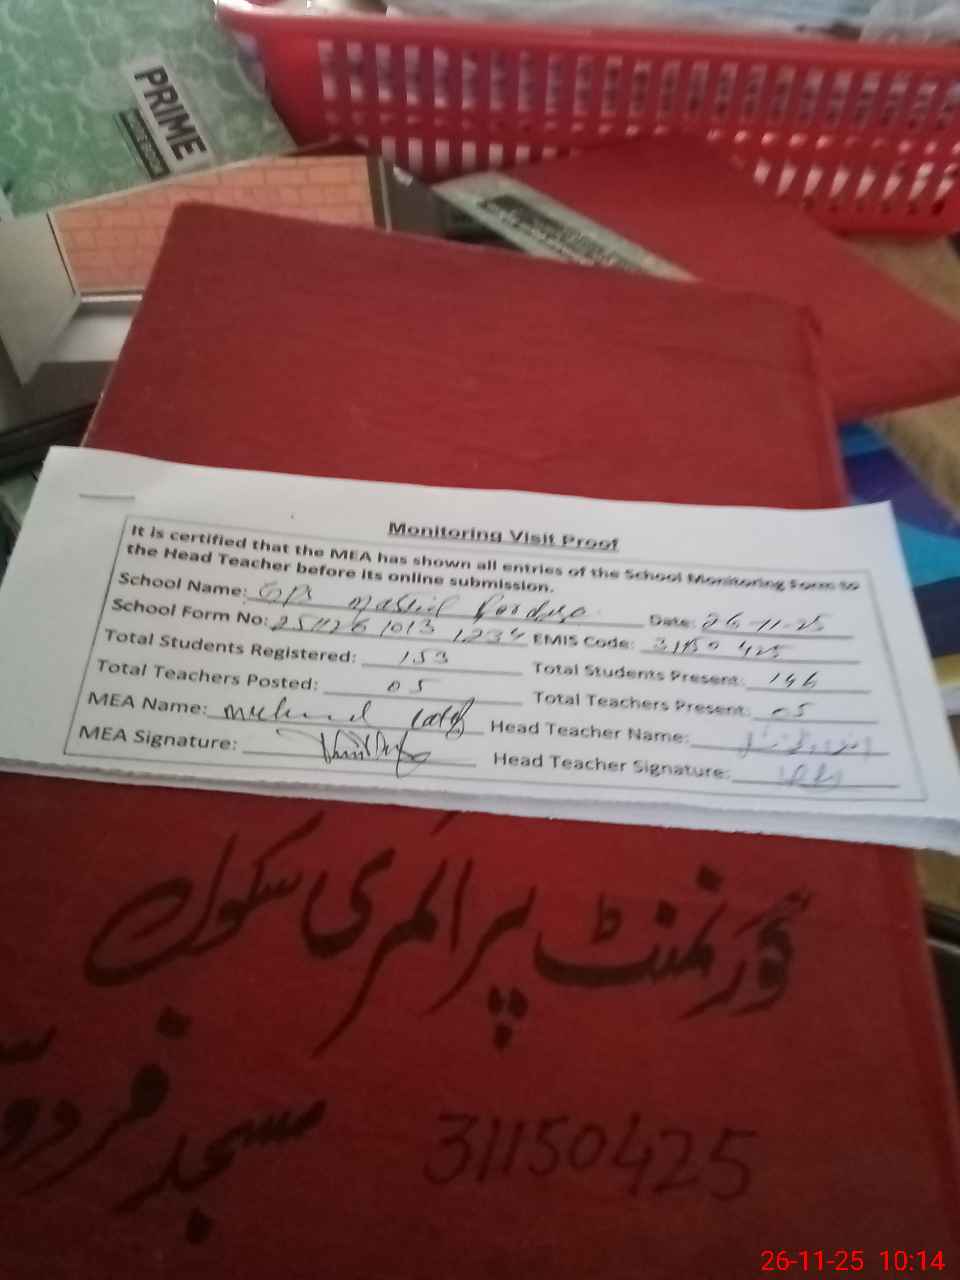 PRIME
Monitoring Visit Proof
It is certified that the MEA has shown all entries of the School Monitoring Form to
the Head Teacher before its online submission.
School Name: GPS Masjid Date: 26-11-25
School Form No: EMIS Code: 31150425
Total Students Registered: 153 Total Students Present: 146
Total Teachers Posted: 05 Total Teachers Present: 05
MEA Name: Head Teacher Name:
MEA Signature: Head Teacher Signature:
گورنمنٹ پرائمری سکول
مسجد
31150425
26-11-25 10:14